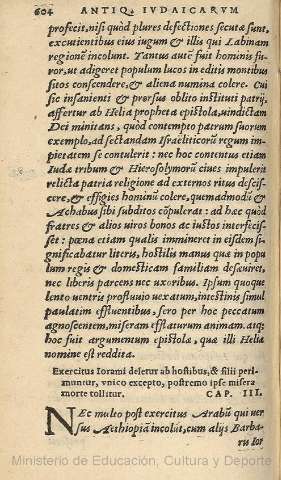 604 ANTIQ. IVDAICARVM
profecit, nisi quòd plures defectiones secutæ sunt,
excutientibus eius iugum & illis qui Labinam
regionē incolunt. Tantus autē fuit hominis fu-
ror, ut adigeret populum lucos in editis montibus
sitos conscendere, & aliena numina colere. Cui
sic insanienti & prorsus oblito instituti patrij,
affertur ab Helia propheta epistola, uindictam
Dei minitans, quòd contempto patrum suorum
exemplo, ad sectandam Israeliticorū regum im-
pietatem se contulerit: nec hoc contentus etiam
Iudæ tribum & Hierosolymorū ciues impulerit
relicta patria religione ad externos ritus descis-
cere, & effigies hominū colere, quemadmodū &
Achabus sibi subditos cōpulerat: ad hæc quòd
fratres & alios uiros bonos ac iustos interfecis-
set: pœna etiam qualis immineret in eisdem si-
gnificabatur literis, hostilis manus quæ in popu
lum regis & domesticam familiam desæuiret,
nec liberis parcens nec uxoribus. Ipsum quoque
lento uentris profluuio uexatum, intestinis simul
paulatim effluentibus, sero per hoc peccatum
agnoscentem, miseram efflaturum animam. atq;
hoc fuit argumentum epistolæ, quæ illi Heliæ
nomine est reddita.
Exercitus Iorami deletur ab hostibus, & filii peri
muntur, vnico excepto, postremo ipse misera
morte tollitur. CAP. III.
NEc multo post exercitus Arabū qui uer
sus Aethiopiā incolūt, cum alijs Barba-
ris Ior
Ministerio de Educación, Cultura y Deporte